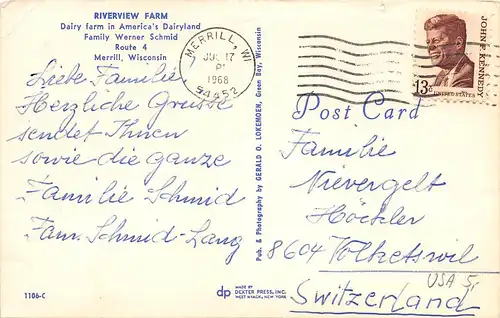 RIVERVIEW FARM
Dairy farm in America's Dairyland
Family Werner Schmid
Route 4
Merrill, Wisconsin
MERRILL, WI
17
1968
54452
JOHN F. KENNEDY
13c
UNITED STATES
Post Card
Liebe Familie,
Herzliche Grüsse
sendet Ihnen
sowie die ganze
Familie Schmid
Fam. Schmid-Lang
Pub. & Photography by GERALD O. LOKEMOEN, Green Bay, Wisconsin
Familie
Nievergelt
Höckler
8604 Volketswil
USA 5,
Switzerland
1106-C
dp
MADE BY
DEXTER PRESS, INC.
WEST NYACK, NEW YORK